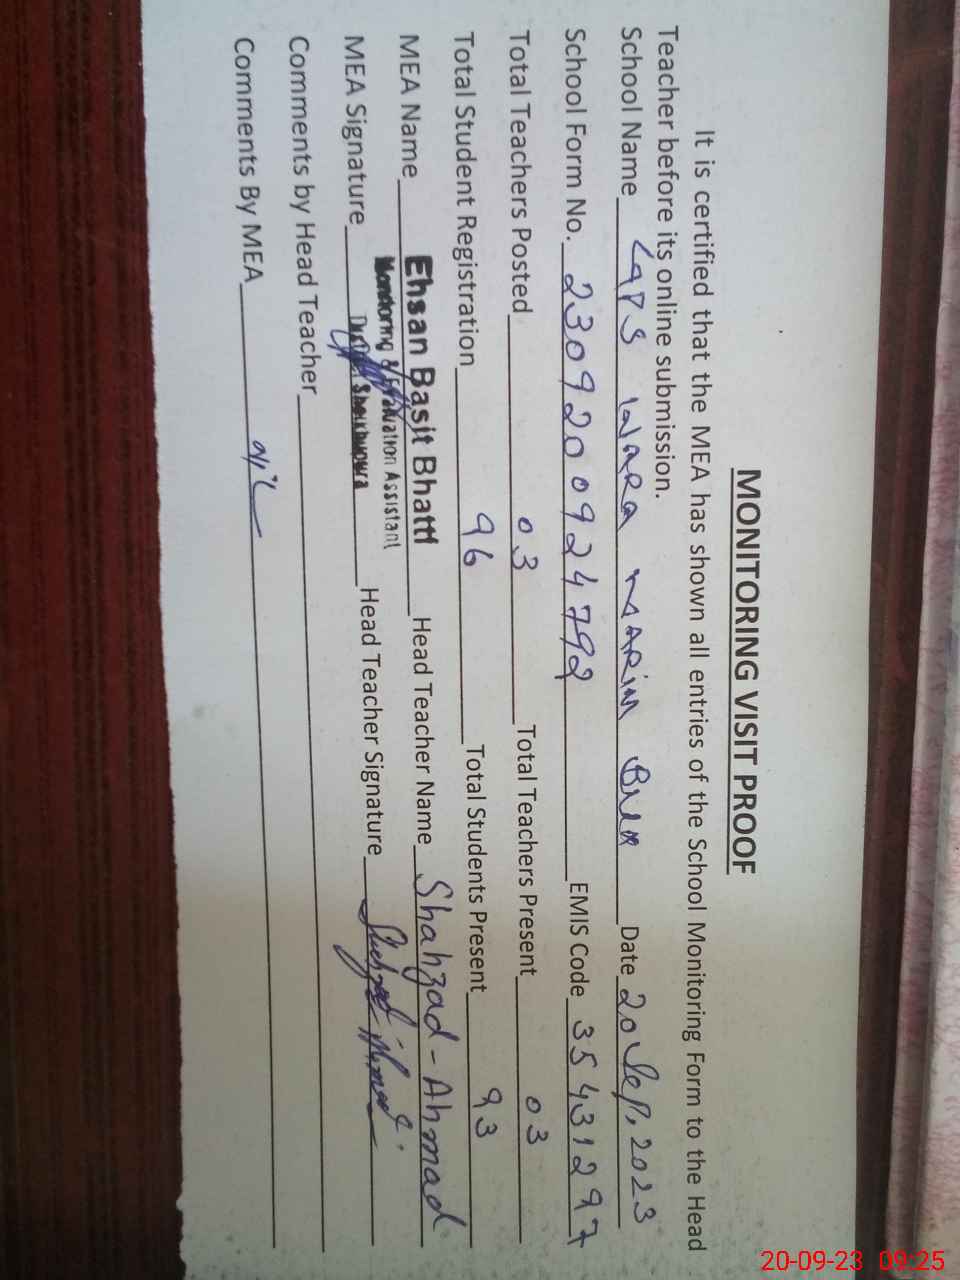 MONITORING VISIT PROOF
It is certified that the MEA has shown all entries of the School Monitoring Form to the Head
Teacher before its online submission.
School Name WARA MARIM Date 20 Sep, 2023
School Form No. 2309200924792 EMIS Code 35431297
Total Teachers Posted 03 Total Teachers Present 03
Total Student Registration 96 Total Students Present 93
MEA Name Ehsan Basit Bhatti Head Teacher Name Shahzad - Ahmad
Monitoring & Evaluation Assistant
MEA Signature Sheikhupura Head Teacher Signature Shahzad Ahmad
Comments by Head Teacher
Comments By MEA
20-09-23 09:25